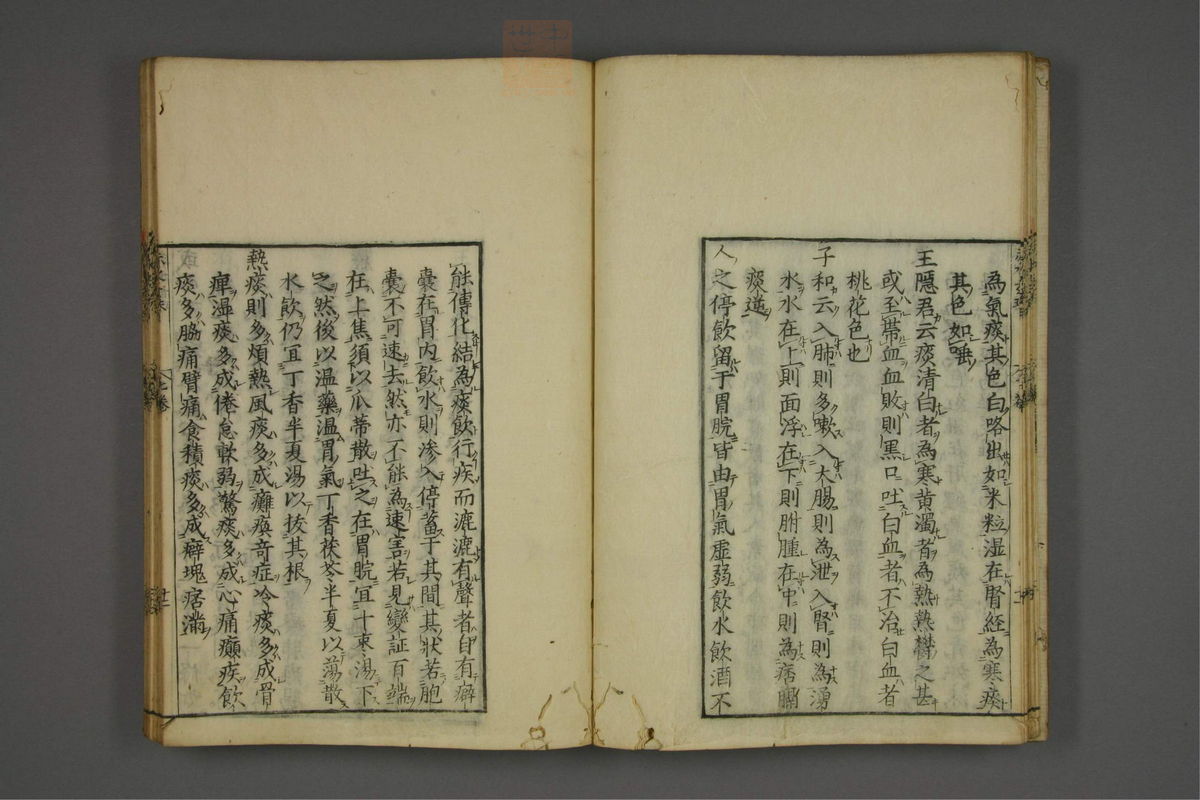 為氣痰其色白咯出如米粒湿在腎経為寒痰
其色如唾
王隠君云痰清白者為寒黄濁者為熱熱欝之甚
或至帯血血敗則黒只吐白血者不治白血者
桃花色也
子和云入肺則多嗽入大腸則為泄入腎則為湧
水水在上則面浮在下則胕腫在中則為痞膈
痰逆
人之停飲留于胃脘皆由胃氣虚弱飲水飲酒不
能傳化結為痰飲行疾而漉漉有聲者自有癖
囊在胃内飲水則滲入停蓄于其間其狀若胞
囊不可速去然亦不能為速害若見變証百端
在上焦須以瓜蒂散吐之在胃脘宜十棗湯下
之然後以温藥温胃氣丁香茯苓半夏以蕩散
水飲仍宜丁香半夏湯以拔其根
熱痰則多煩熱風痰多成癱瘓奇症冷痰多成骨
痺湿痰多成倦怠軟弱驚痰多成心痛癲疾飲
痰多脇痛臂痛食積痰多成癖塊痞滿